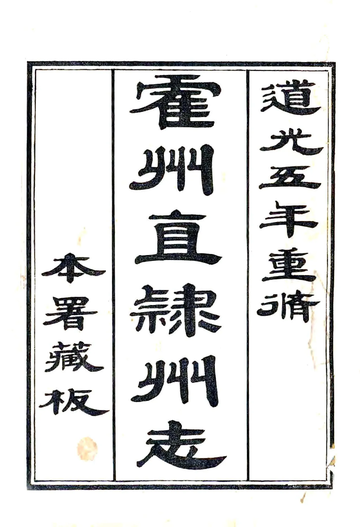 道光五年重脩
霍州直隷州志
本署藏板